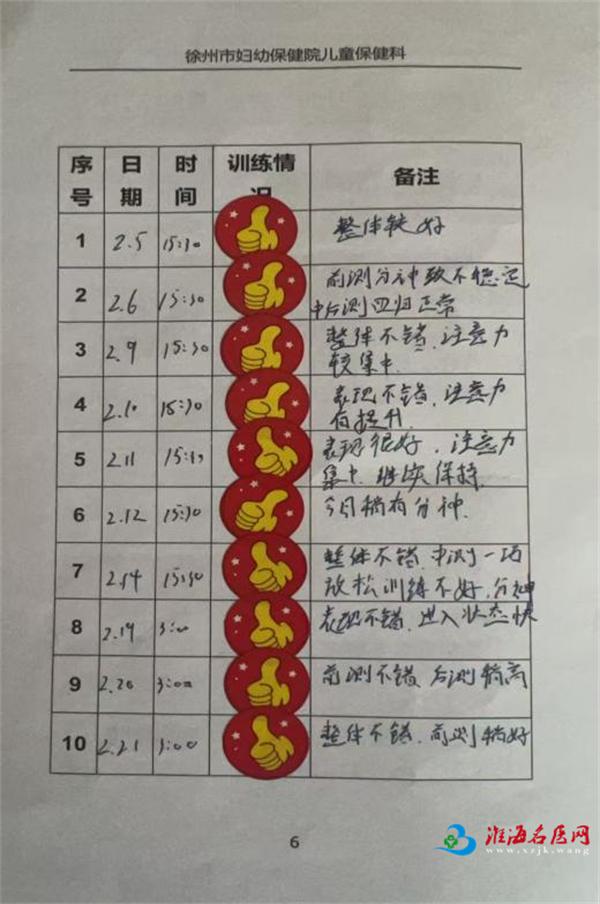 徐州市妇幼保健院儿童保健科
序号 日期 时间 训练情况 备注
1 2.5 15:30 整体较好
2 2.6 15:30 前测分神致不稳定
中后测回归正常
3 2.9 15:30 整体不错、注意力
较集中
4 2.10 15:30 表现不错、注意力
有提升
5 2.11 15:30 表现很好，注意力
集中 继续保持
6 2.12 15:30 今日稍有分神
7 2.14 15:30 整体不错 中测一
放松训练不好、分神
8 2.19 3:00 表现不错、进入状态快
9 2.20 3:00 前测不错、后测稍高
10 2.21 3:00 整体不错、前测稍好
6
淮海名医网
www.xzjk.wang